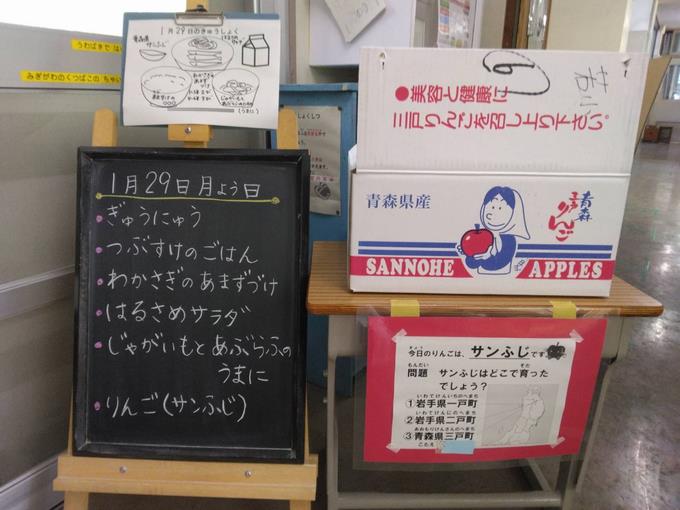 うわばきで は
みぎがわのくつばこの ちゃい
1月29日のきゅうしょく
青森県
サンふじ
はるさめ
サラダ
わかさぎの
あまず
づけ
じゃがいもと
あぶらふの
(うまに)
1月29日月よう日
・ぎゅうにゅう
・つぶすけのごはん
・わかさぎのあまずづけ
・はるさめサラダ
・じゃがいもとあぶらふの
うまに
・りんご(サンふじ)
●美容と健康に
三戸りんごを召し上り下さい。
青森県産
青森
りんご
SANNOHE APPLES
きょう
今日のりんごは、サンふじです
もんだい そだ
問題 サンふじはどこで育った
でしょう？
いわてけんいちのへまち
①岩手県一戸町
いわてけんにのへまち
②岩手県二戸町
あおもりけんさんのへまち
③青森県三戸町
こたえ